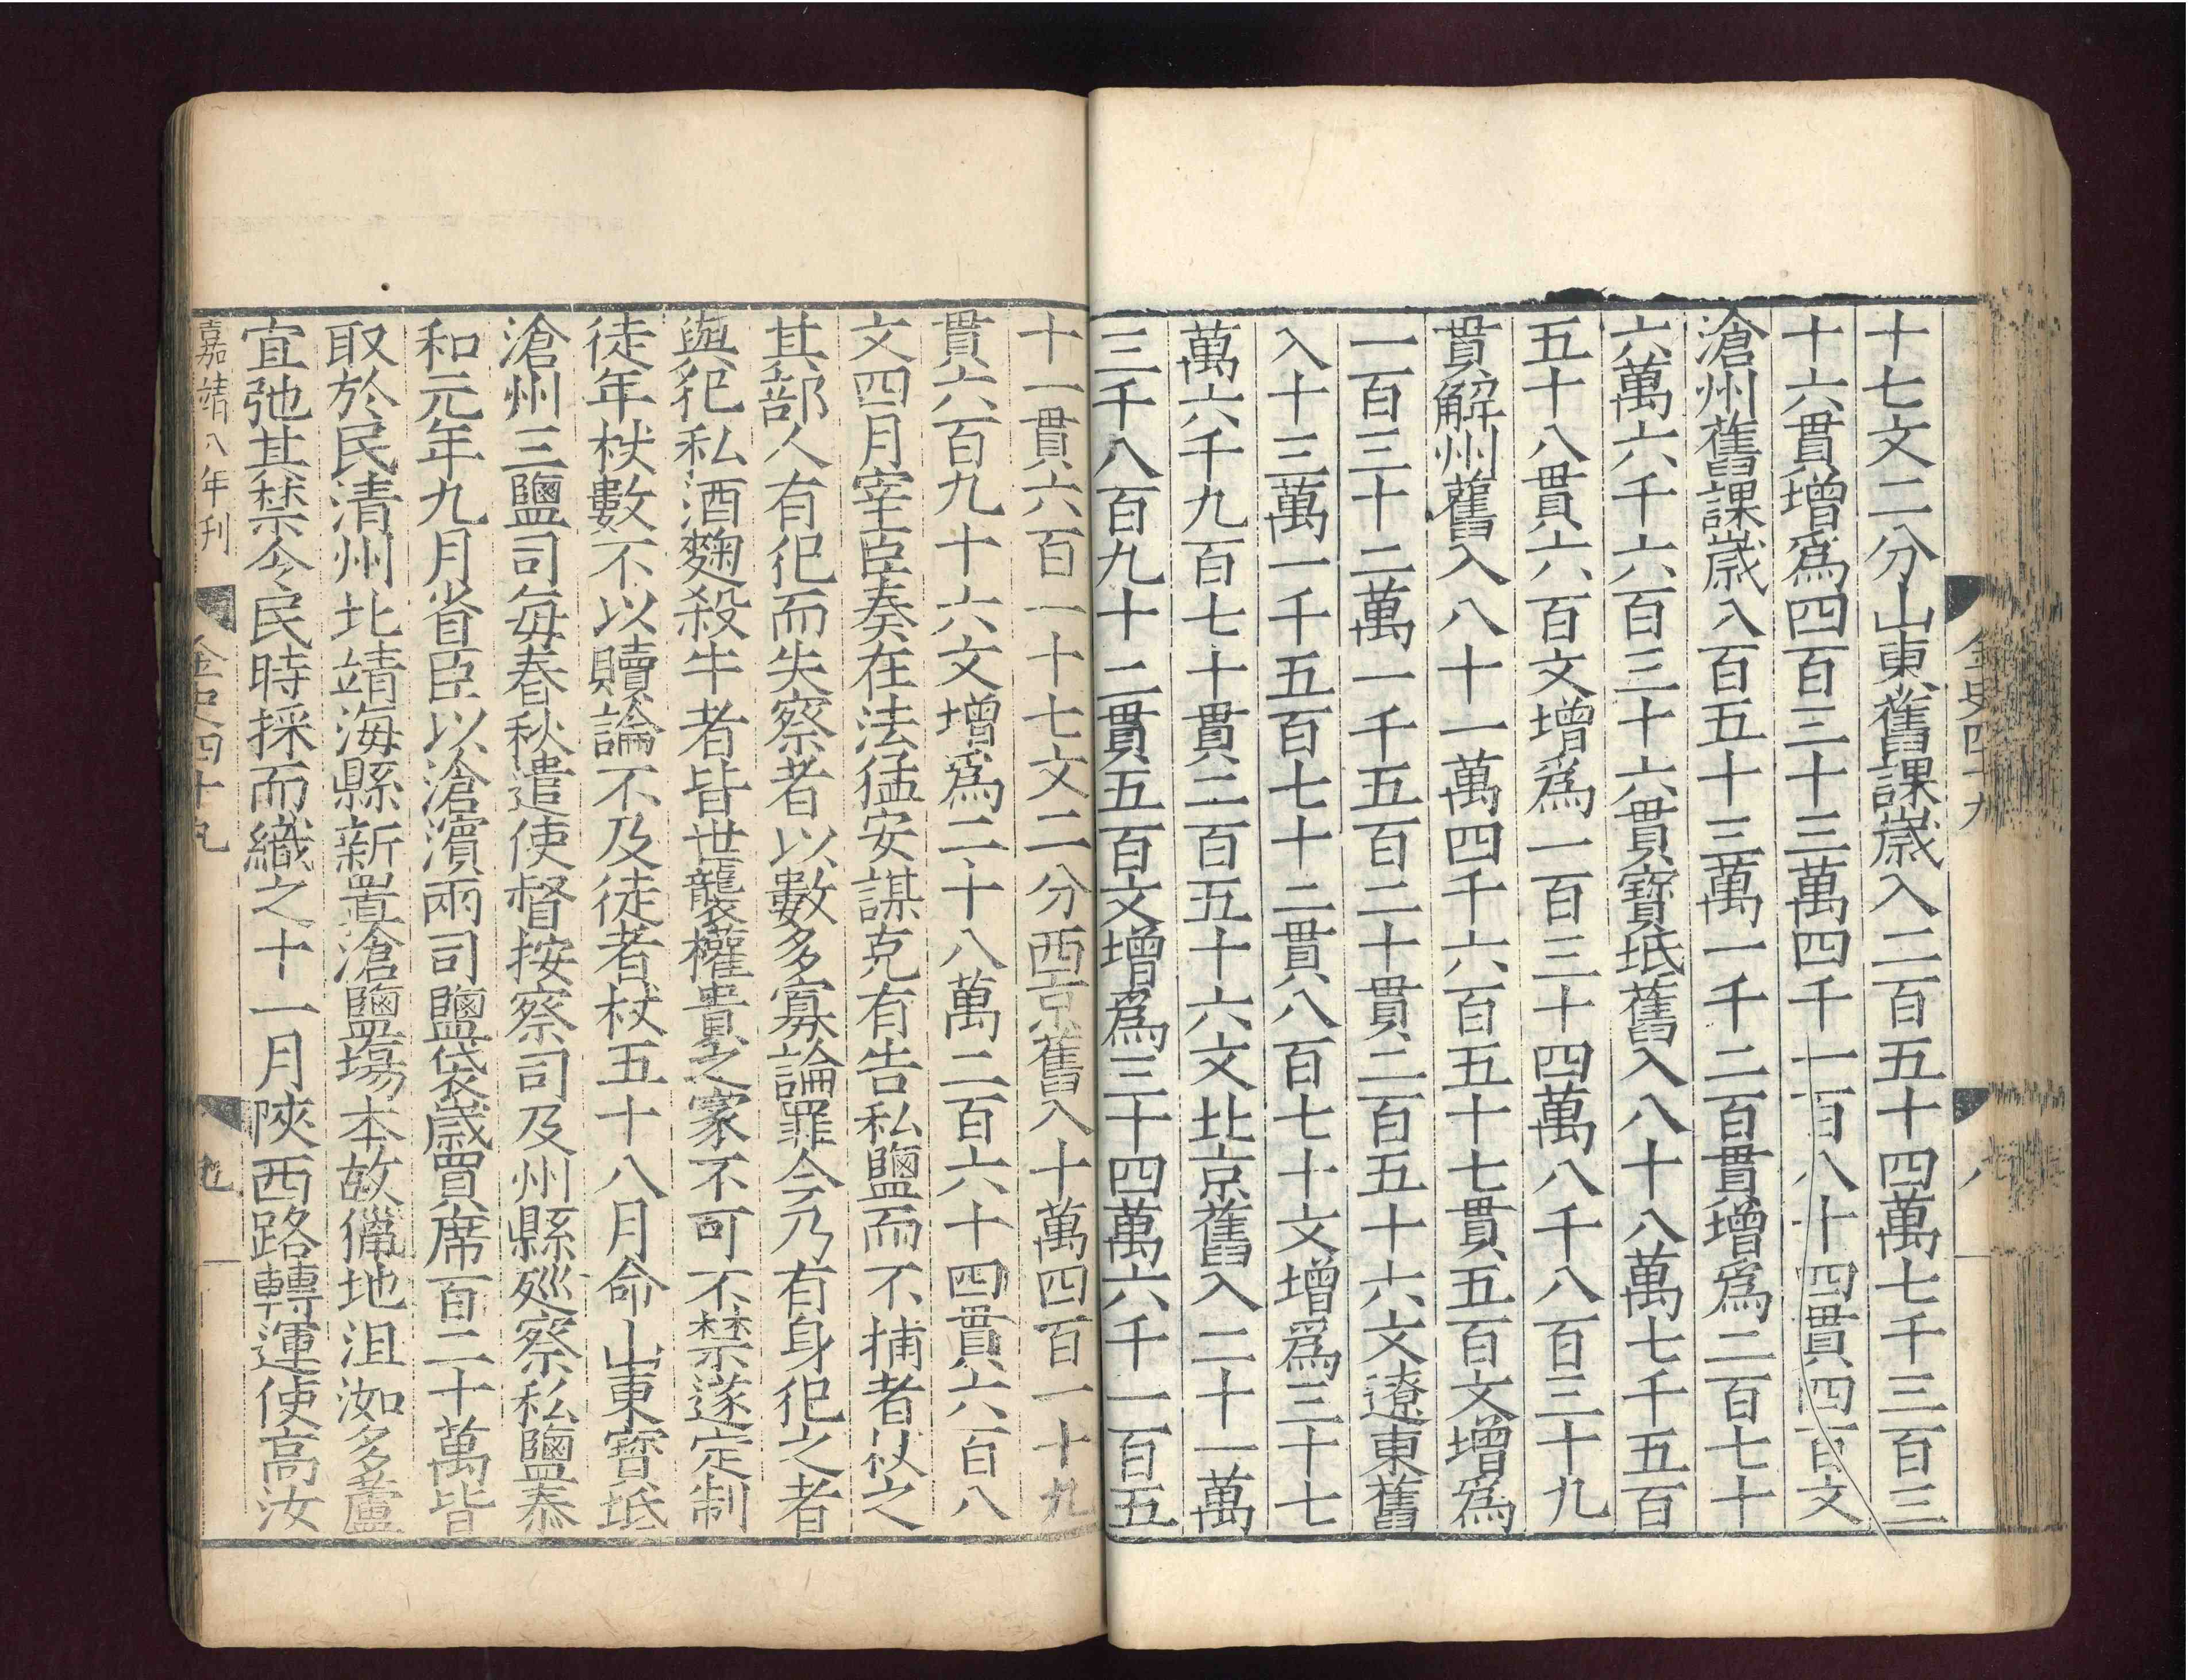 十七文二分山東舊課歲入二百五十四萬七千三百三
十六貫增爲四百三十三萬四千一百八十四貫四百文
滄州舊課歲入百五十三萬一千二百貫增爲二百七十
六萬六千六百三十六貫寶坻舊入八十八萬七千五百
五十八貫六百文增爲一百三十四萬八千八百三十九
貫解州舊入八十一萬四千六百五十七貫五百文增爲
一百三十二萬一千五百二十貫二百五十六文遼東舊
入十三萬一千五百七十二貫八百七十文增爲三十七
萬六千九百七十貫二百五十六文北京舊入二十一萬
三千八百九十二貫五百文增爲三十四萬六千一百五
金史四十九 八
十一貫六百一十七文二分西京舊入十萬四百一十九
貫六百九十六文增爲二十八萬二百六十四貫六百八
文四月宰臣奏在法猛安謀克有告私鹽而不捕者杖之
其部人有犯而失察者以數多寡論罪今乃有身犯之者
與犯私酒麴殺牛者皆世襲權貴之家不可不禁遂定制
徒年杖數不以贖論不及徒者杖五十八月命山東寶坻
滄州三鹽司每春秋遣使督按察司及州縣廵察私鹽泰
和元年九月省臣以滄濱兩司鹽袋歲買席百二十萬皆
取於民清州北靖海縣新置滄鹽塲本故獵地沮洳多蘆
宜弛其禁令民時採而織之十一月陝西路轉運使高汝
嘉靖八年刊 金史四十九 九